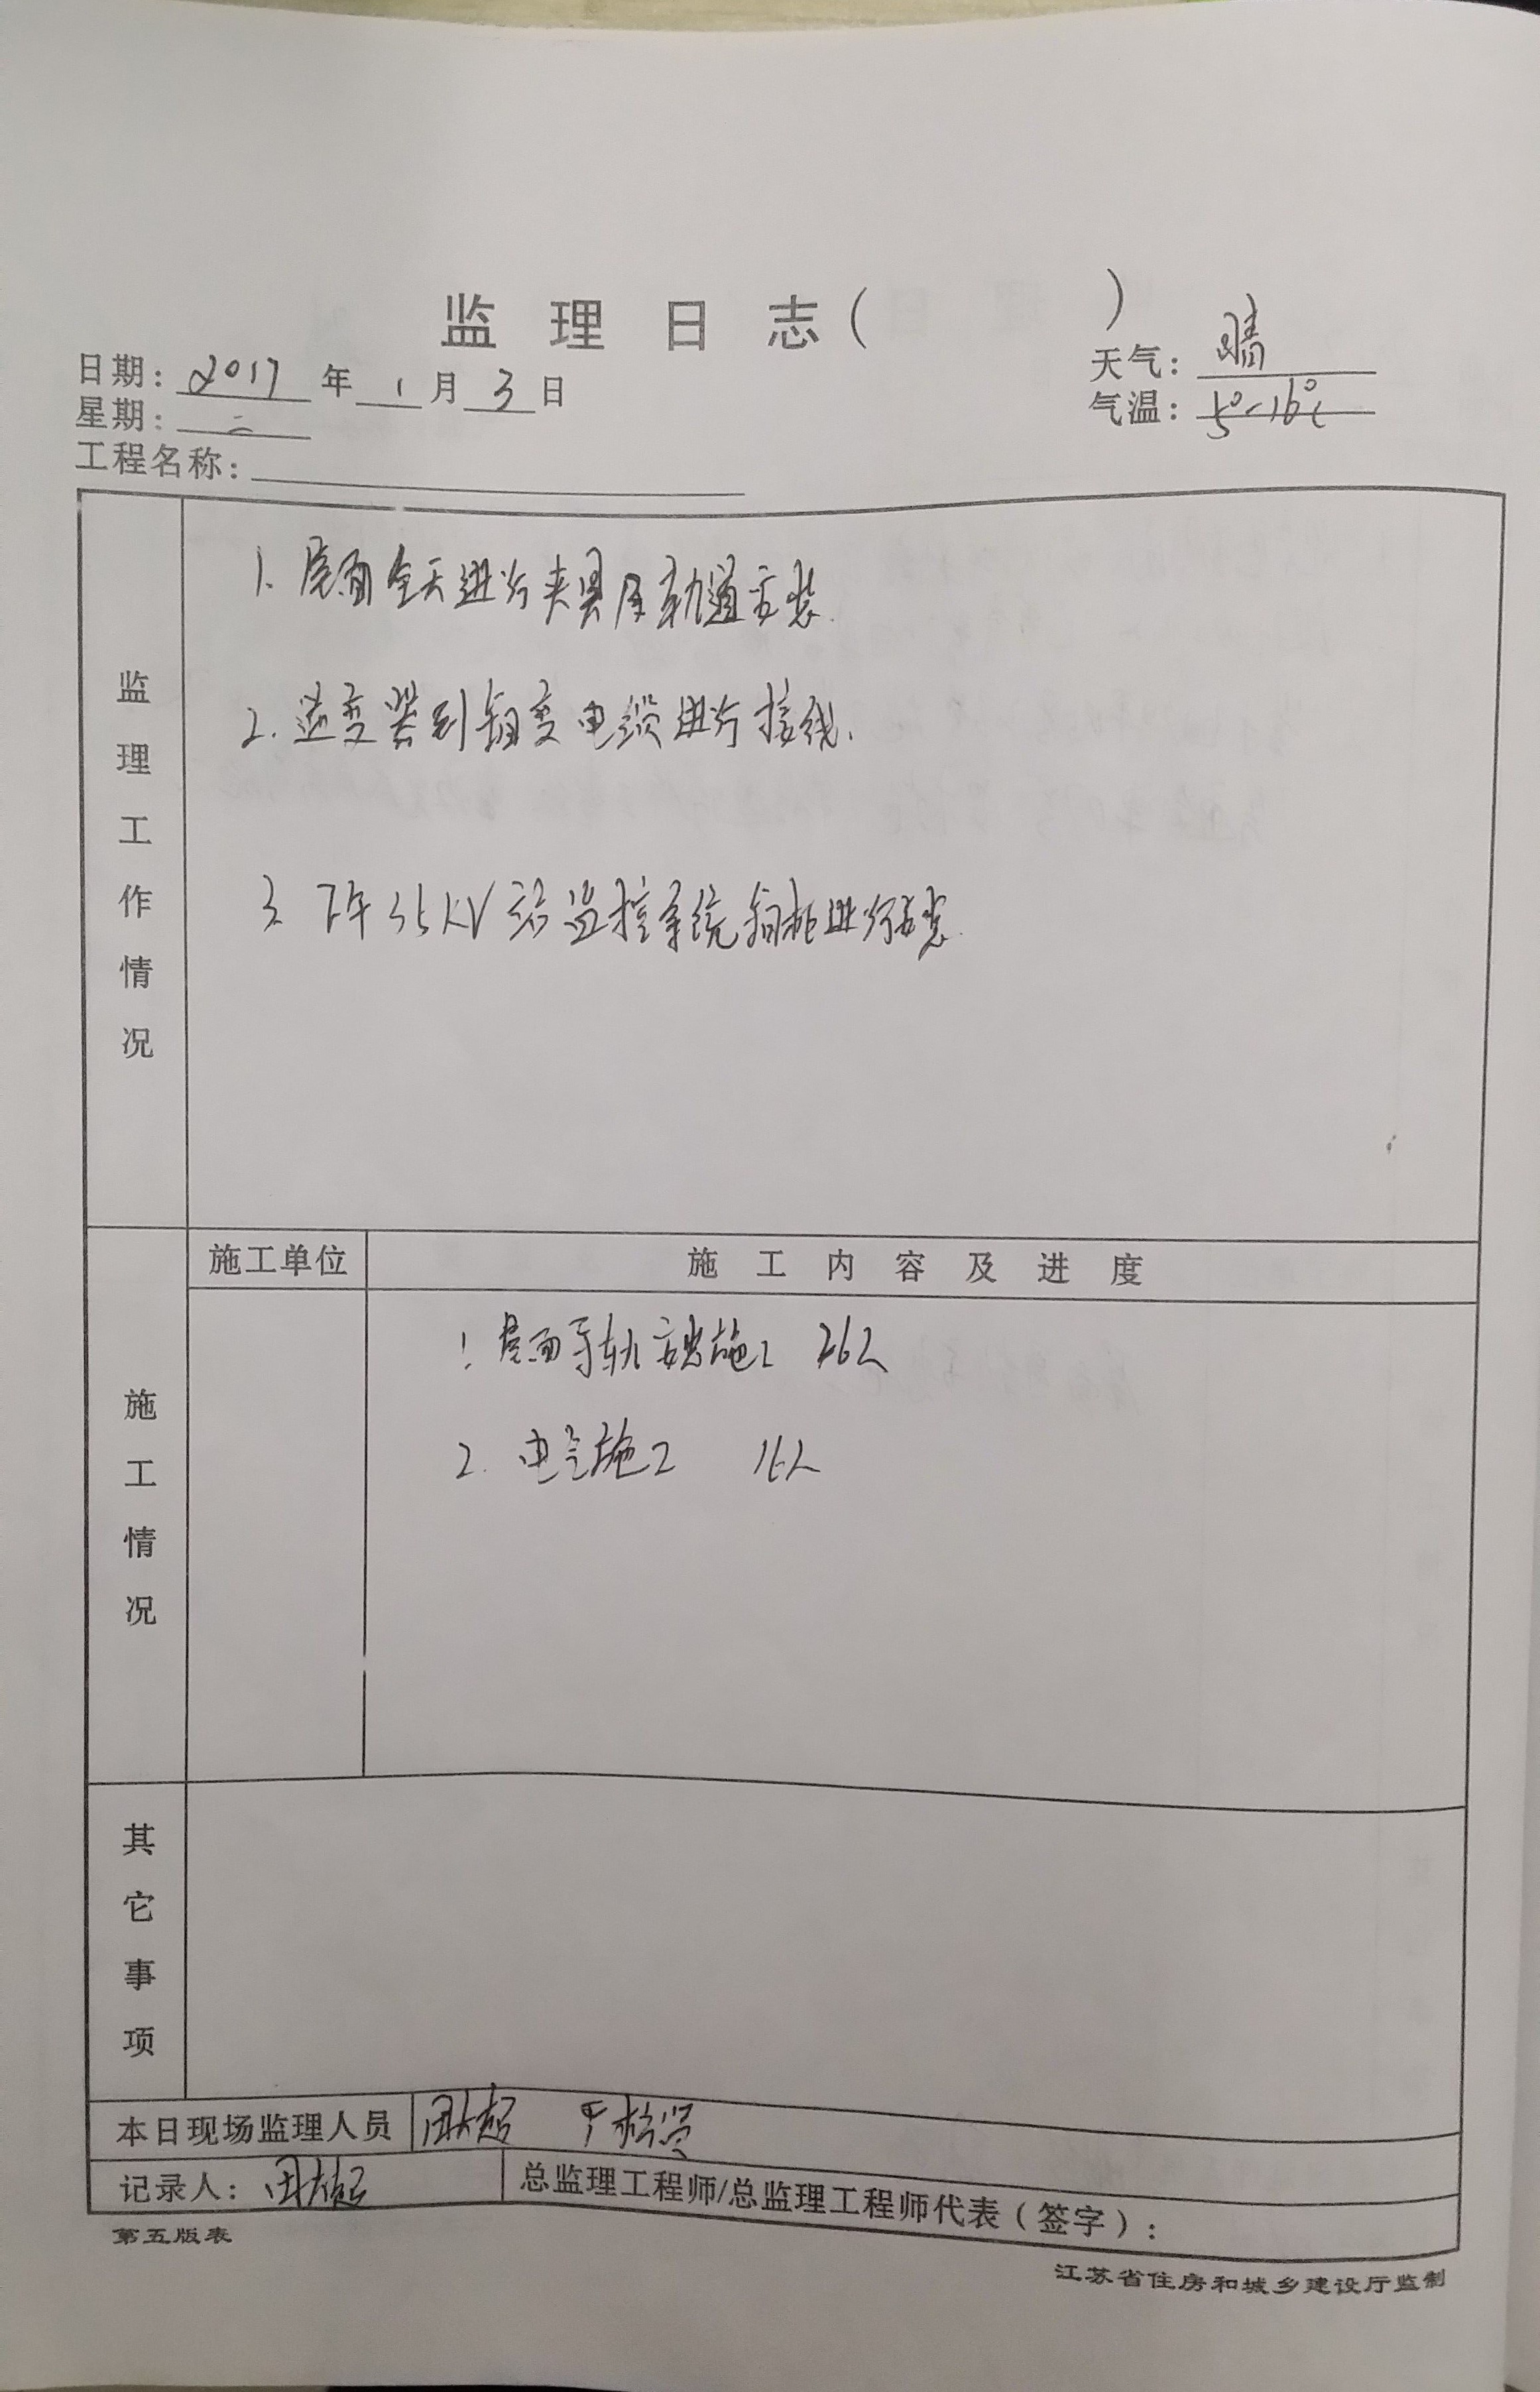 监理日志( )
日期: 2017 年 1 月 3 日
天气: 晴
星期: 二
气温: 5°~16℃
工程名称:
监理工作情况
1. 屋面全天进行夹具及轨道安装.
2. 逆变器到箱变电缆进行接线.
3. 下午35KV站监控系统 进行安装.
施工单位
施工内容及进度
施工情况
1. 屋面导轨安装施工 26人
2. 电气施工 16人
其它事项
本日现场监理人员
记录人:
总监理工程师/总监理工程师代表(签字):
第五版表
江苏省住房和城乡建设厅监制